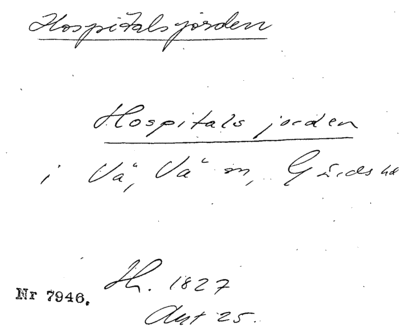 Hospitalsjorden
Hospitals jorden
i Vä, Vä sn, Gärds hd
Nr 7946. Th. 1827
Akt 25.